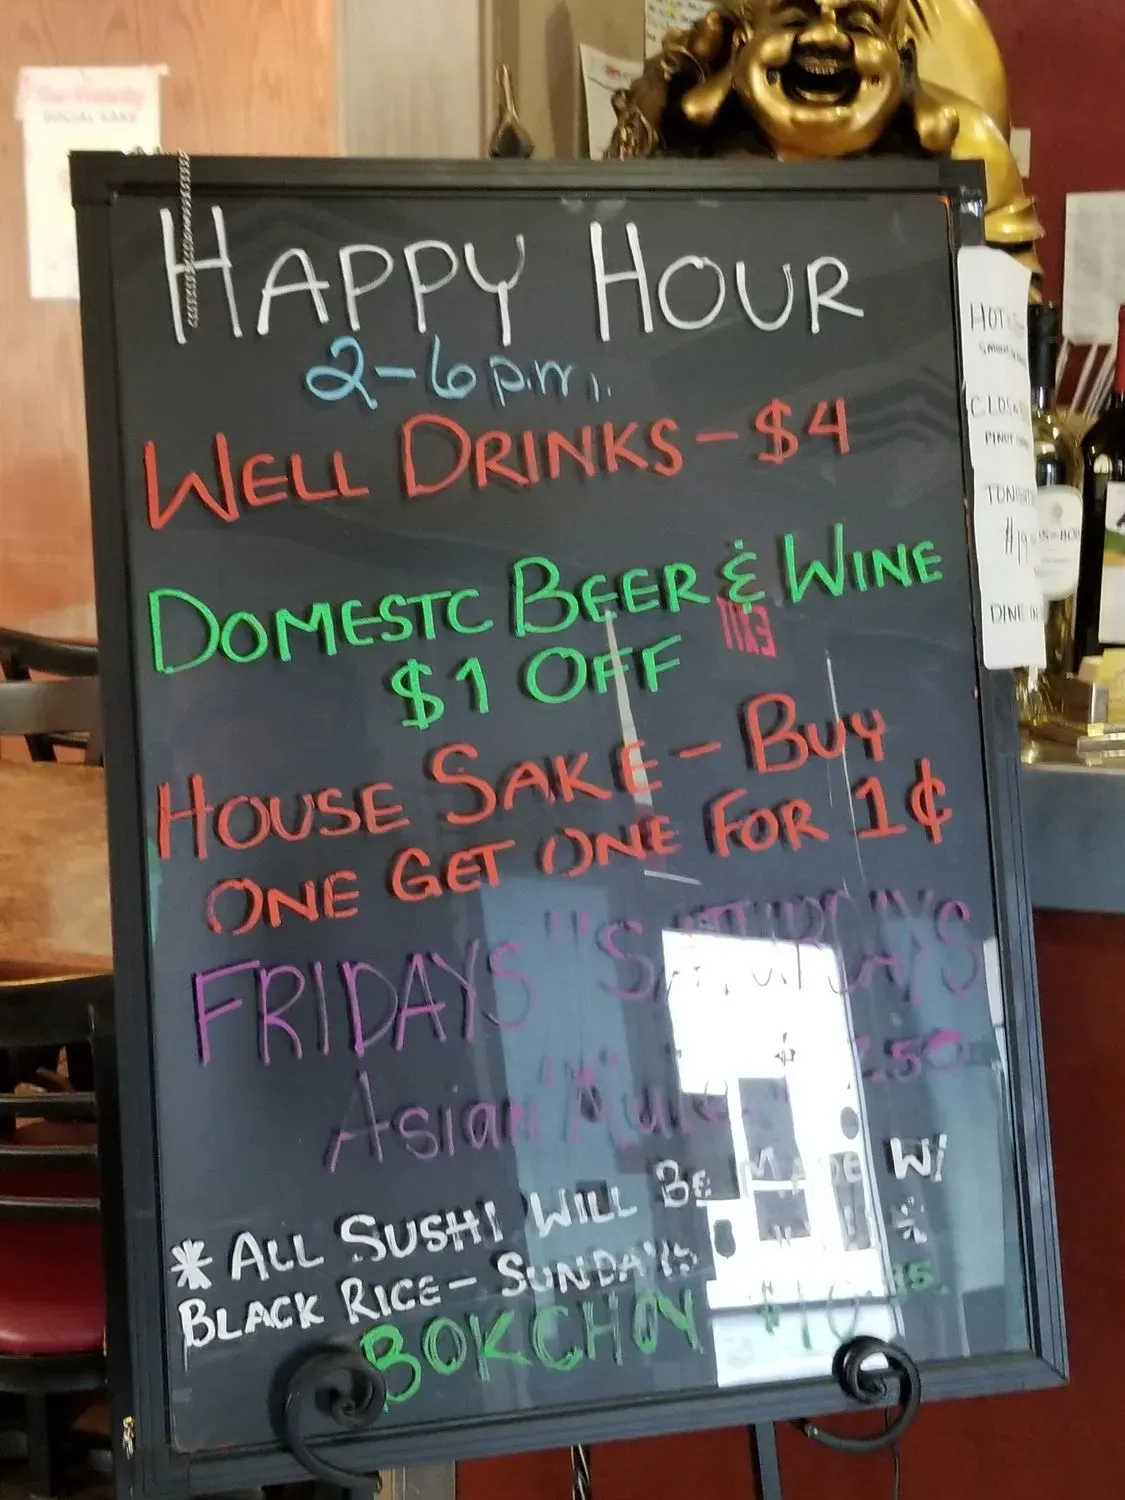 SOCIAL SAKE
HAPPY HOUR
2-6 p.m.
WELL DRINKS - $4
DOMESTC BEER & WINE
$1 OFF
HOUSE SAKE - BUY
ONE GET ONE FOR 1¢
FRIDAYS "SATURDAYS
Asian "Mule" $ .50
* ALL SUSHI WILL BE MADE W/
BLACK RICE - SUNDAYS
BOKCHOY
HOT
CLOS
PINOT
TONIGHT
DINE IN